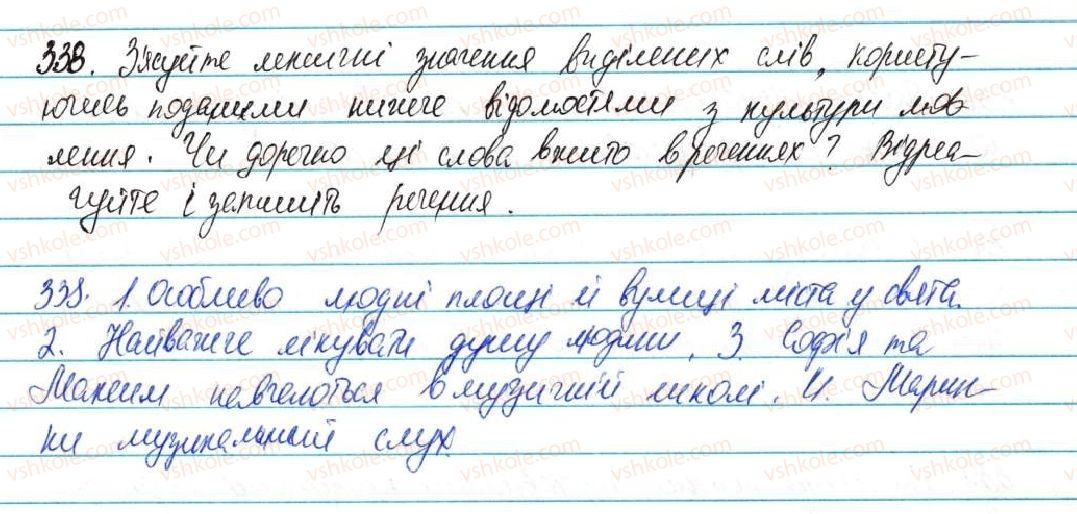 338. З'ясуйте лексичні значення виділених слів, користу-
ючись поданими нижче відомостями з культури мов
лення. Чи доречно ці слова вжито в реченнях? Відреа-
гуйте і запишіть речення.
338. 1. Особливо людні площі й вулиці міста у свята.
2. Найважче лікувати душу людини. 3. Софія та
Максим навчаються в музичній школі. 4. Марин-
ки музикальний слух